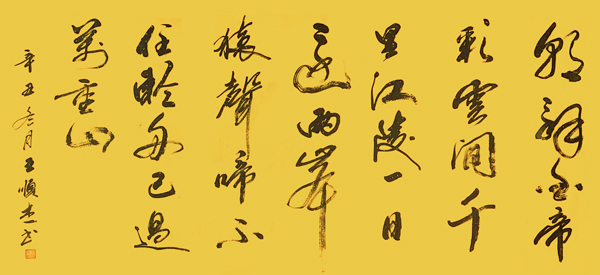 朝辭白帝
彩雲間千
里江陵一日
還兩岸
猿聲啼不
住輕舟已過
萬重山
辛丑冬月王順杰书